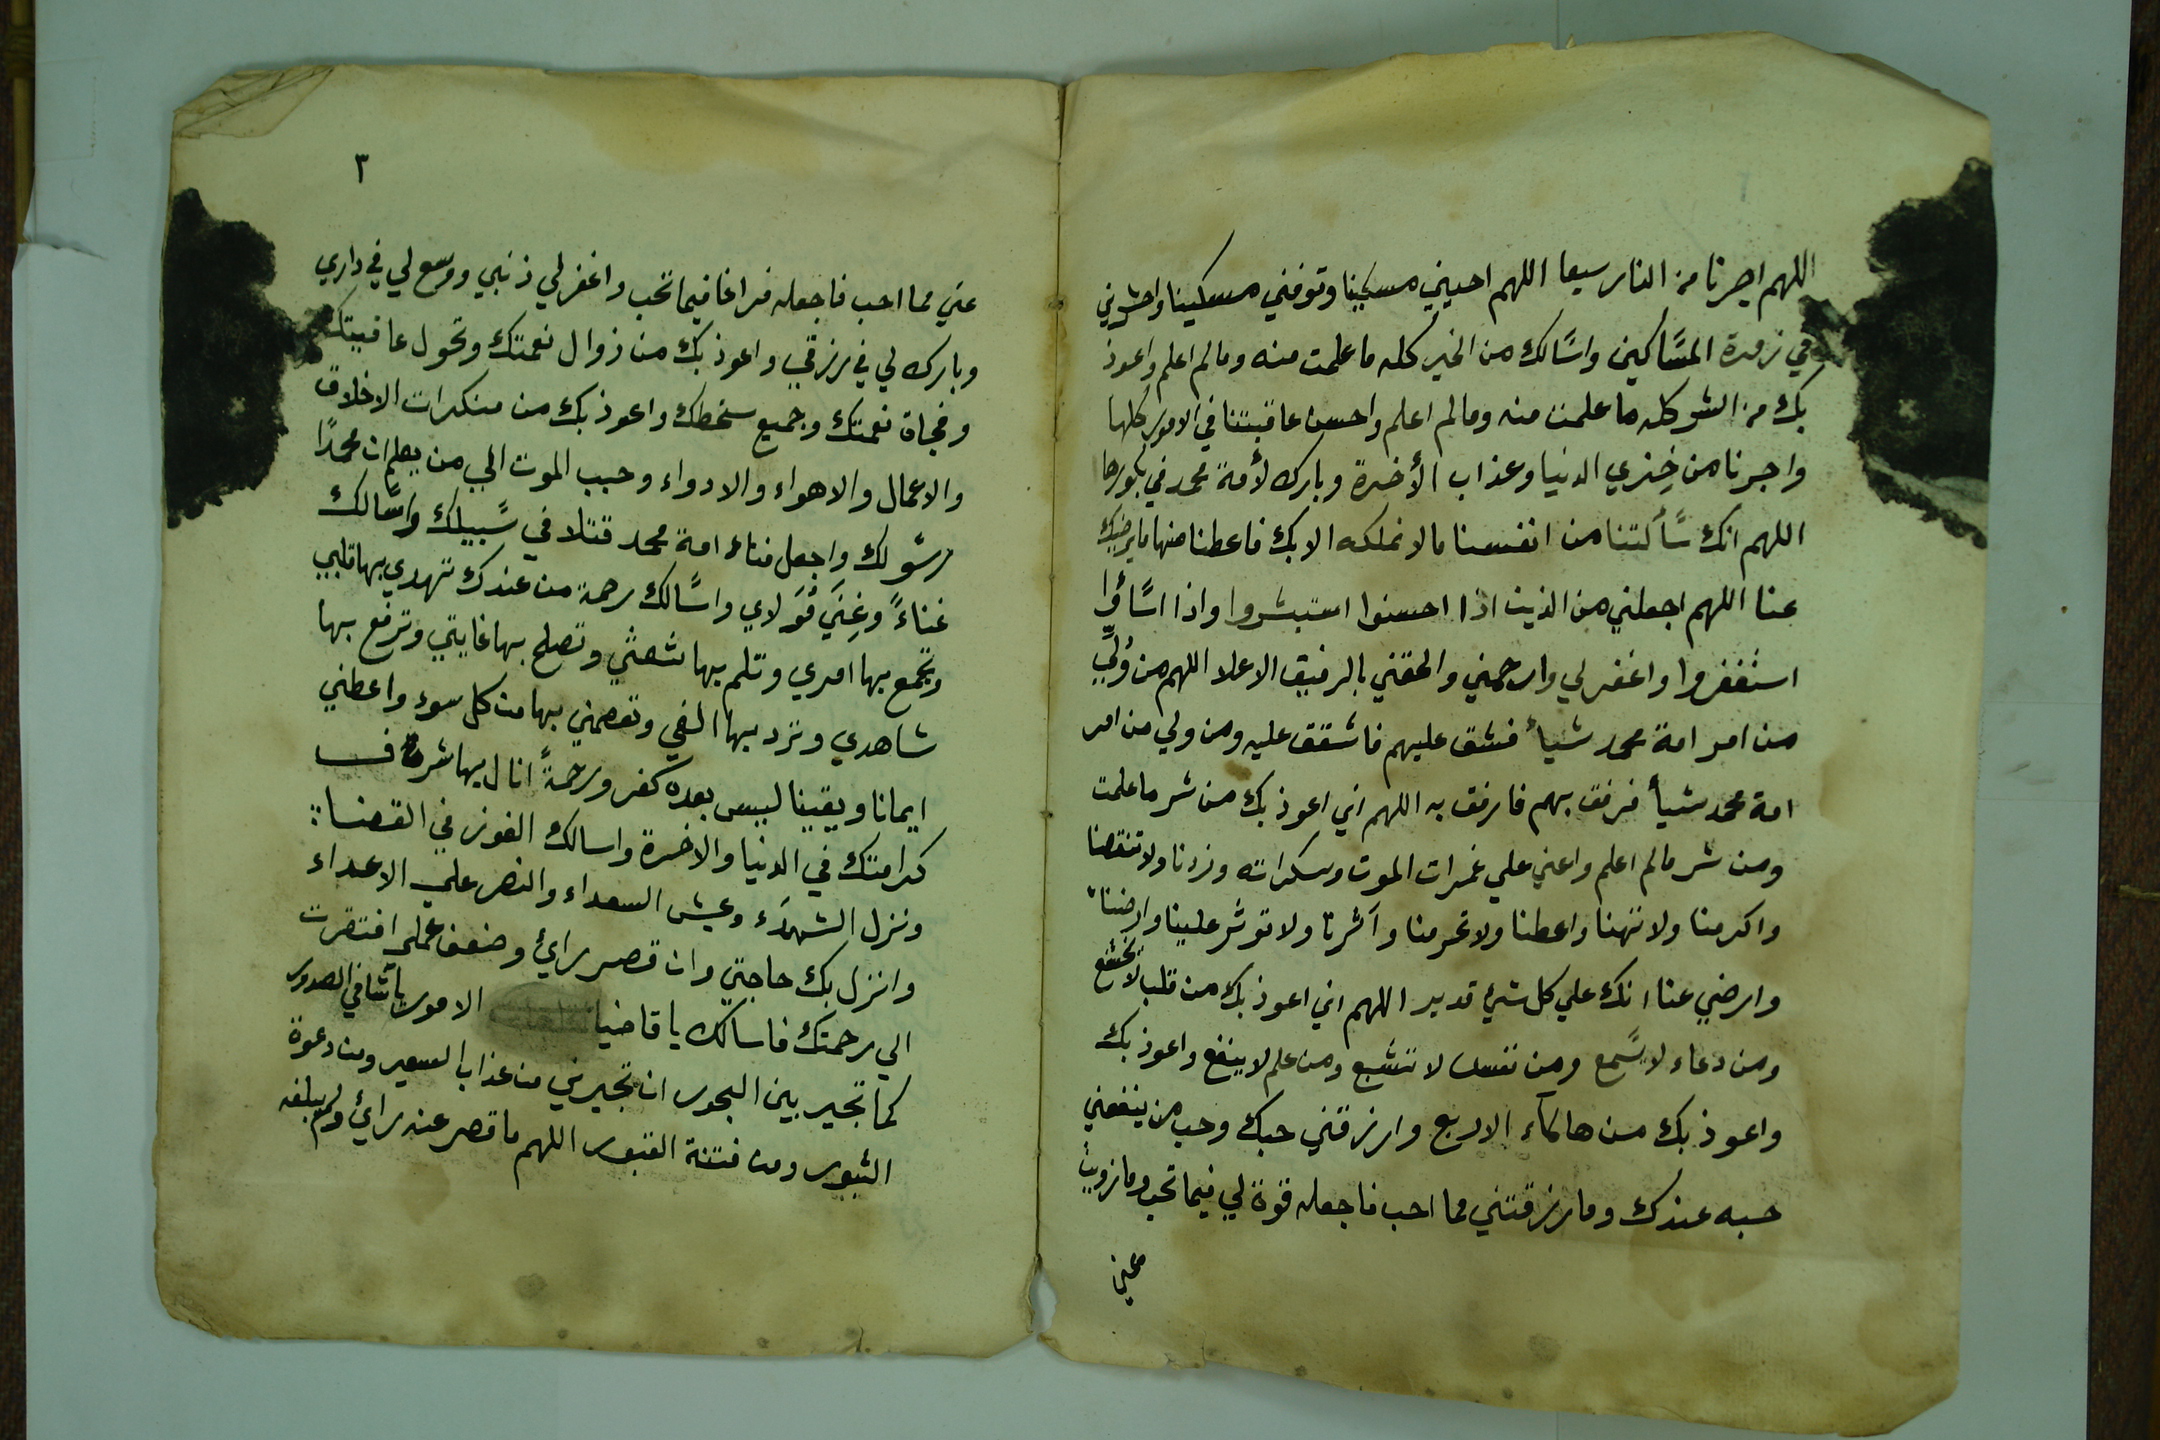 اللهم اجرنا من النار سبعا اللهم احييني مسكينا وتوفني مسكينا واحشرني
في زمرة المساكين واسالك من الخير كله ما علمت منه ومالم اعلم واعوذ
بك من الشر كله ما علمت منه ومالم اعلم واحسن عاقبتنا في الامور كلها
واجرنا من خزي الدنيا وعذاب الأخرة وبارك لأمة محمد في بكورها
اللهم انك سألتنا من انفسنا مالا نملكه الا بك فاعطنا منها ما يرضيك
عنا اللهم اجعلني من الذين اذا احسنوا استبشروا واذا اساؤا
استغفروا واغفر لي وارحمني والحقني بالرفيق الاعلا اللهم من ولي
من امر امة محمد شيأ فشق عليهم فاشقق عليه ومن ولي من امر
امة محمد شيأ فرفق بهم فارفق به اللهم اني اعوذ بك من شر ما علمت
ومن شر مالم اعلم واعني علي غمرات الموت وسكراته وزدنا ولا تنقصنا
واكرمنا ولا تهنا واعطنا ولا تحرمنا وآثرنا ولا توثر علينا وارضنا
وارضي عنا انك علي كل شئ قدير اللهم اني اعوذ بك من قلب لا يخشع
ومن دعاء لا يسمع ومن نفس لا تشبع ومن علم لا ينفع واعوذ بك
واعوذ بك من هاكاء الاربع وارزقني حبك وحب من ينفعني
حبه عندك وما رزقتني مما احب فاجعله قوة لي فيما تحب وما زويت
عني
٣
عني مما احب فاجعله فراغا فيما تحب واغفر لي ذنبي ووسع لي في داري
وبارك لي في رزقي واعوذ بك من زوال نعمتك وتحول عافيتك
وفجاة نقمتك وجميع سخطك واعوذ بك من منكرات الاخلاق
والاعمال والاهواء والادواء وحبب الموت الي من يعلم ان محمدًا
رسولك واجعل فناء امة محمد قتلا في سبيلك واسالك
غناءً وغِنَي مَوْلاي واسالك رحمة من عندك تهدي بها قلبي
وتجمع بها امري وتلم بها شعثي وتصلح بها غايتي وترفع بها
شاهدي وترد بها الفي وتعصمني بها من كل سوء واعطني
ايمانا ويقينا ليس بعده كفر ورحمةً انال بها شرف
كرامتك في الدنيا والاخرة واسالك الفوز في القضا
ونزل الشهدَء وعيش السعداء والنصر علي الاعداء
وانزل بك حاجتي وان قصر راي وضعف عملي افتقرت
الي رحمتك فاسالك يا قاضيا الامور يا شافي الصدور
كما تجير بين البحور ان تجيرني من عذاب السعير ومن دعوة
الثبور ومن فتنة القبور اللهم ما قصر عنه راي ولم يبلغه